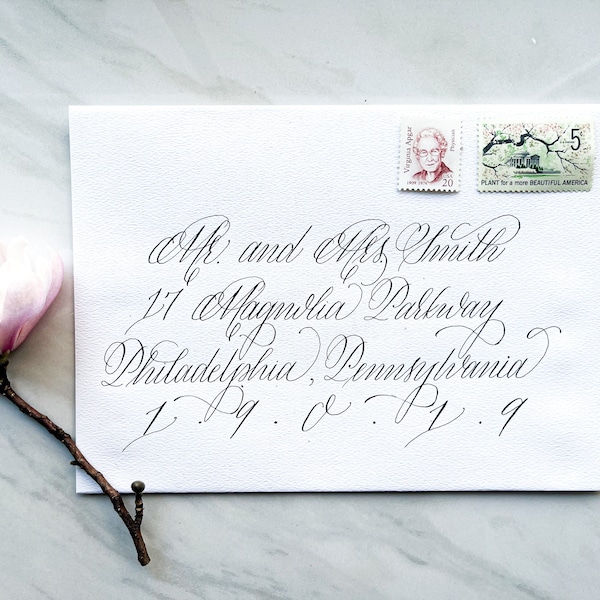 Virginia Apgar
Physician
1909-1974
USA
20
5¢
PLANT for a more BEAUTIFUL AMERICA
Mr. and Mrs. Smith
17 Magnolia Parkway
Philadelphia, Pennsylvania
1 . 9 . 0 . 1 . 9